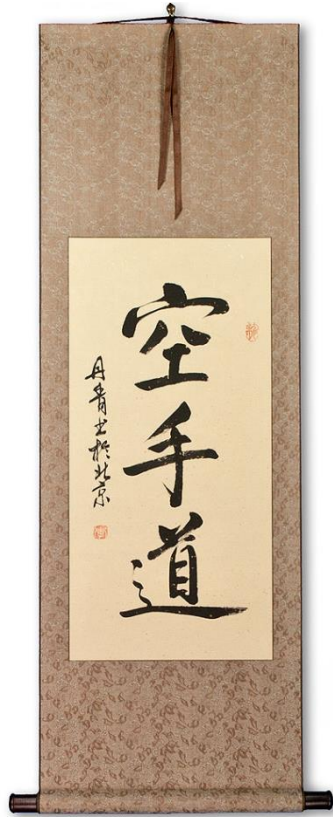 空手道
丹青书於北京